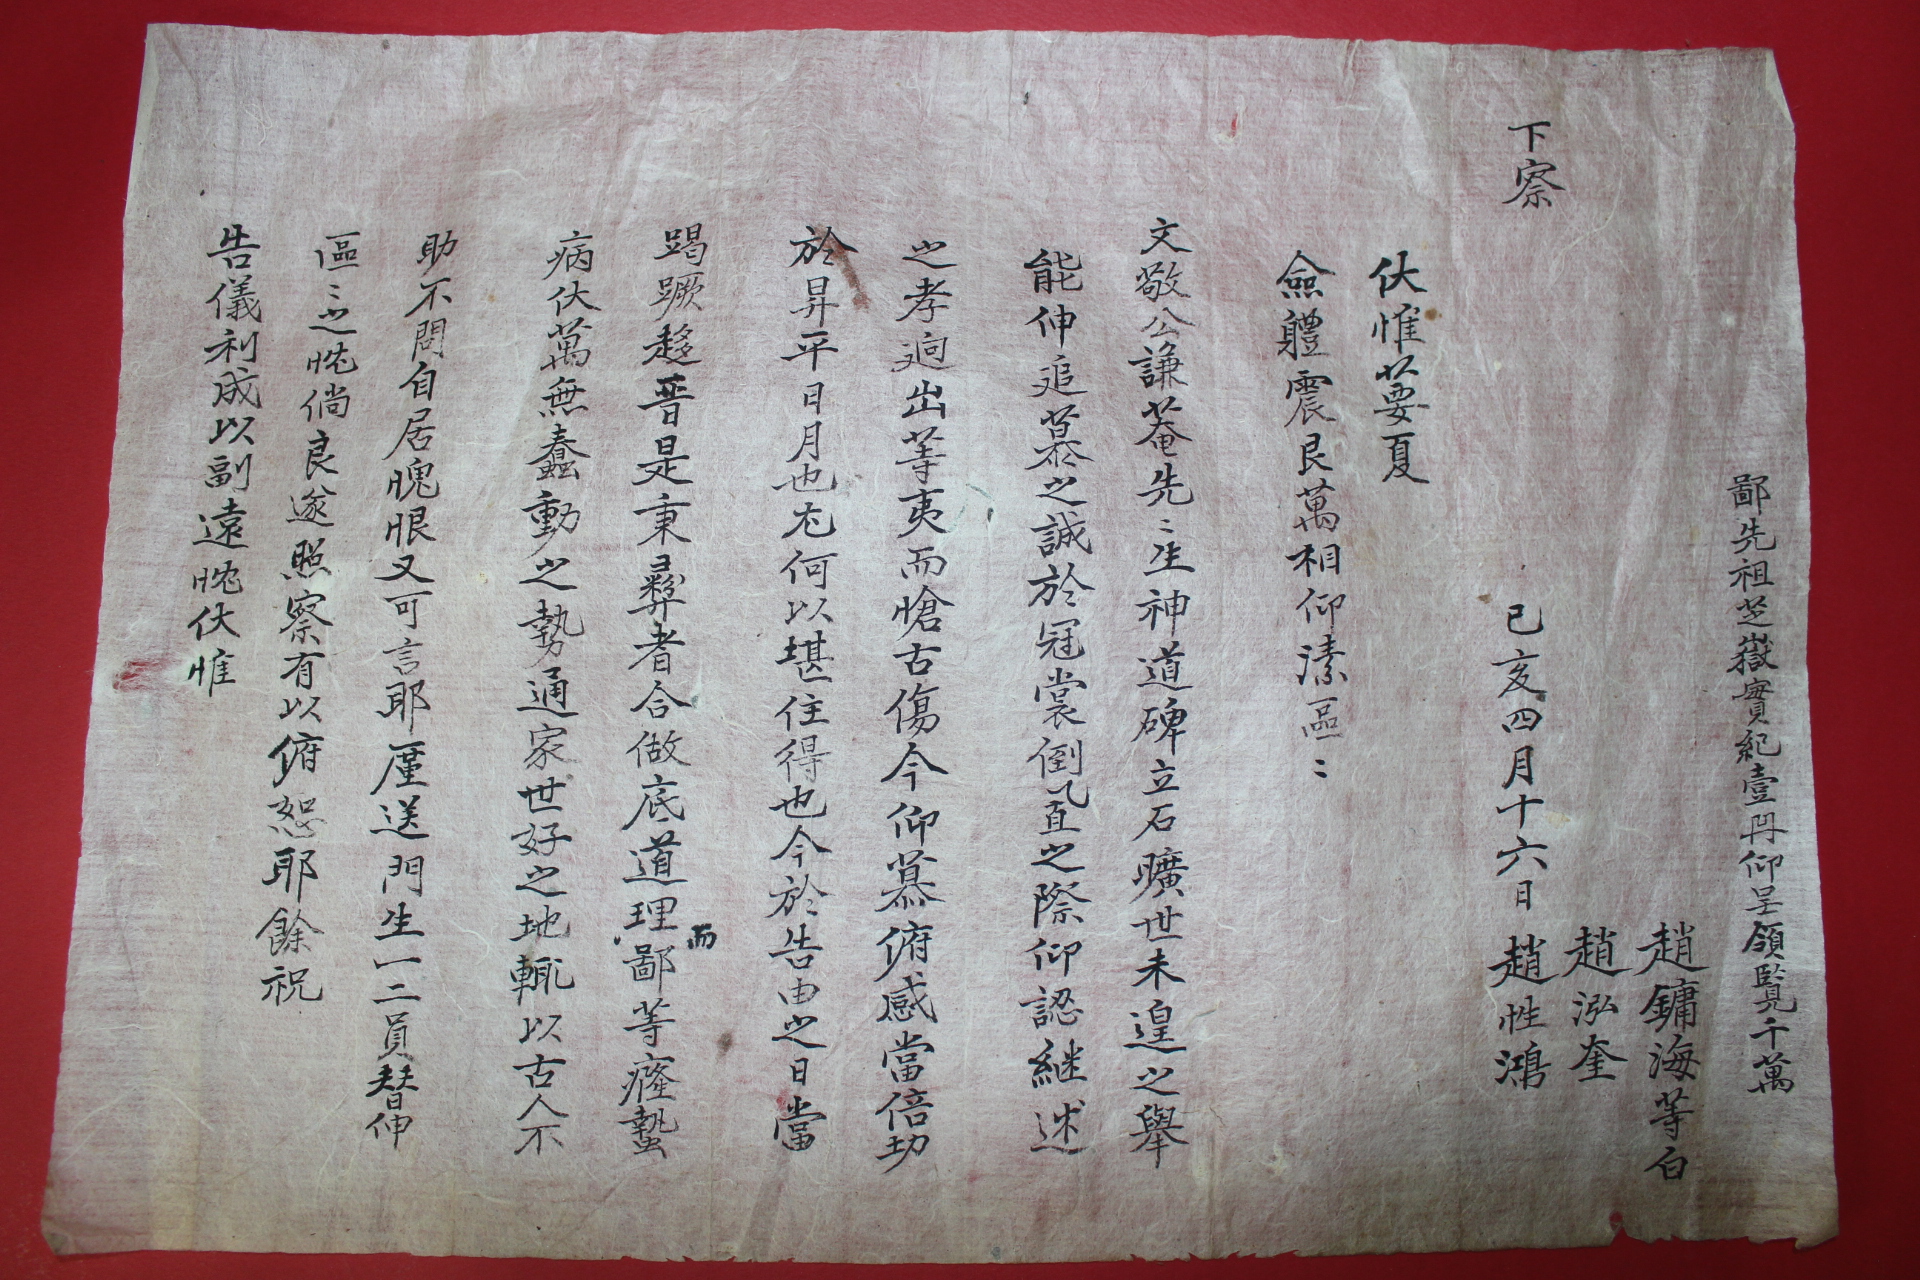 伏惟葽夏
僉體震艮萬相仰溸區〻
文敬公謙菴先〻生神道碑立石曠世未遑之擧
能伸追慕之誠於冠裳倒置之際仰認継述
之孝逈出等夷而愴古傷今仰慕俯感當倍切
於昇平日月也尤何以堪住得也今於告由之日當
竭蹶趍晋是秉彛者合做底道理而鄙等癃蟄
病伏萬無蠢動之勢通家世好之地輒以古人不
助不問自居愧恨又可言耶厪送門生一二員替伸
區〻之忱倘良遂照察有以俯恕耶餘祝
告儀利成以副遠忱伏惟
下察
己亥四月十六日 趙性鴻
趙泓奎
趙鏞海等白
鄙先祖芝嶽實紀壹冊仰呈領覧千萬